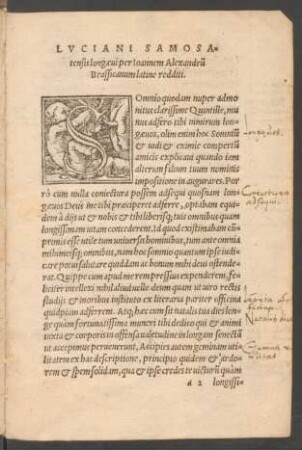 LVCIANI SAMOSA-
tensis longæui per Ioannem Alexandrũ
Brassicanum latine redditi.
SOmnio quodam nuper admo
nitus clarissime Quintille, mu
nus adfero tibi nimirum lon-
gæuos, olim enim hoc Somniũ
& uidi & eximie compertũ
amicis explicata quando iem
alterum filium tuum nominis
impositione inaugurares. Por
rò cum nulla coniectura possem adsequi quosnam lon-
gæuos Deus me tibi præciperet adferre, optabam equi-
dem à dijs ut & nobis & tibi liberisq; tuis omnibus quam
longissimem uitam concederent. Id quod existimabam cũ
primis esse utile tum uniuersis hominibus, tum ante omnia
mihi meisq; omnibus, nam hoc somnio quantum ipse iudi-
care potui salutare quoddam ac bonum mihi deus ostende-
rat. Quippe cum apud me rem pressius expenderem, fe-
liciter intellexi nihil aliud uelle deum quam ut uiro rectis
studijs & moribus instituto ex literaria pariter officina
quidpiam adferrem. Atq; hæc cum sit natalis tuus dies lon-
ge quàm fortunatissima muneri tibi dedico qui & animi
iuxta & corporis ui offensa ualetudine in longam senectũ
te acceptimus peruenerunt, Accipies autem geminam uti-
litatem ex hac descriptione, principio quidem & ardo-
rem & spem solidam, qua & ipse credes te uicturũ quàm
d 2 longissi-
Longæuos.